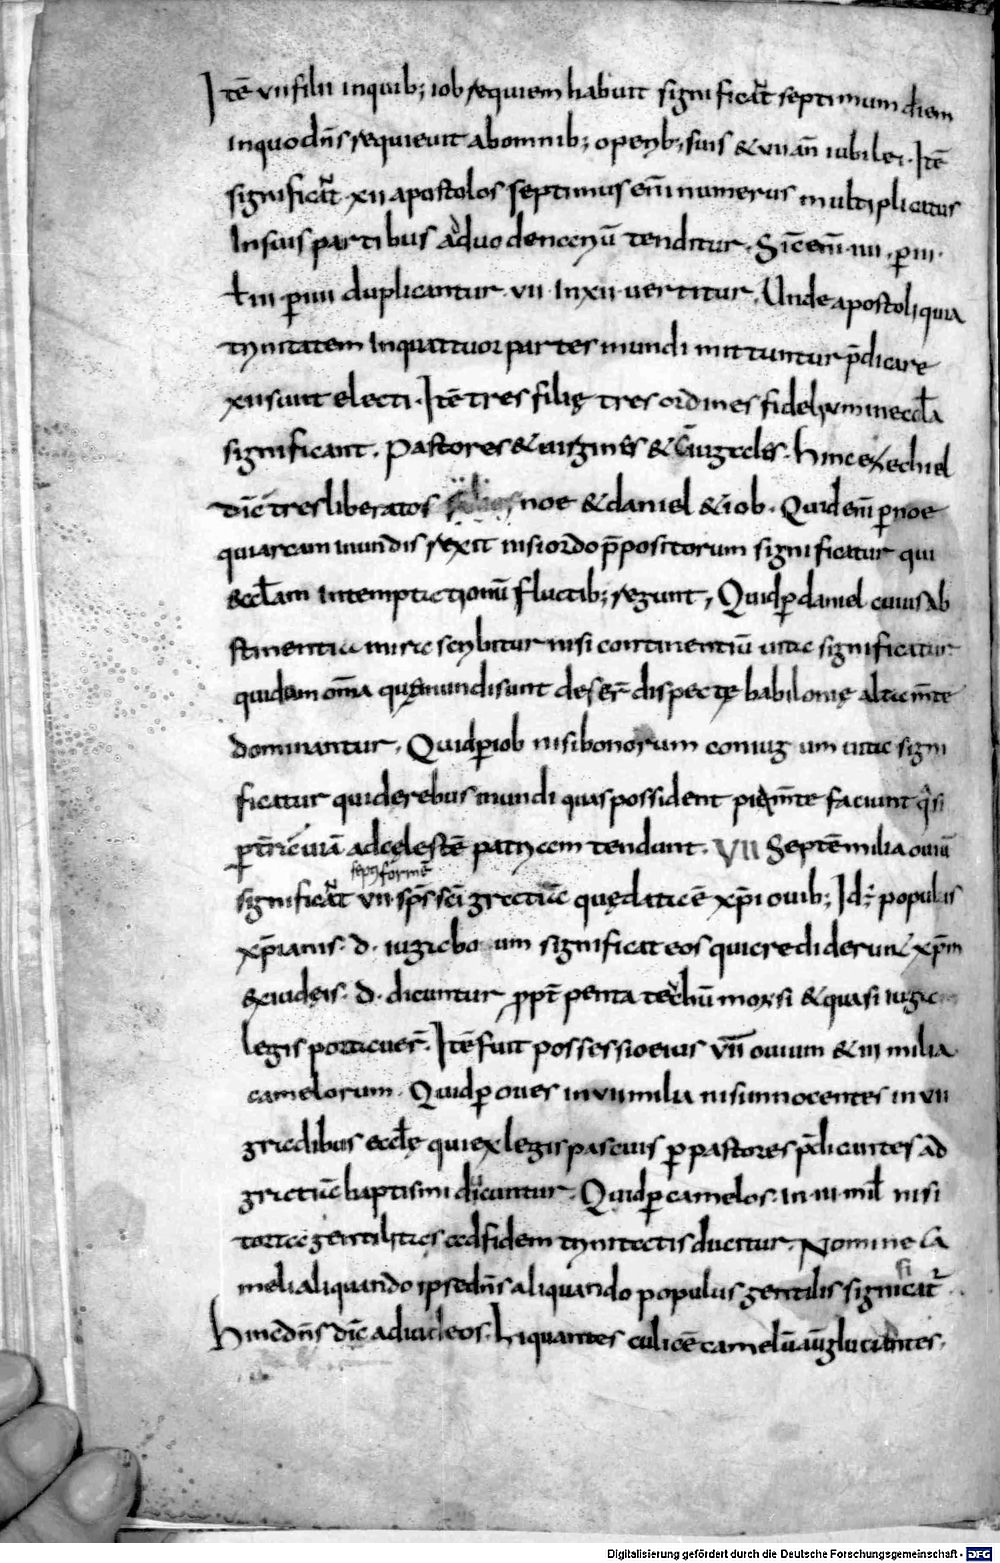 Itē vii filii in quib; iob requiem habuit significāt septimum diem
in quo dñs requieuit ab omnib; operib; suis & vii añ iubilei. Itē
significāt xii apostolos septimus em̄ numerus multiplicatus
In suis partibus ad duodenariū tenditur. Sic em̄ iiii per iii
ł iii per iiii duplicantur vii In xii uertitur. Unde apostoli quia
trinitatem In quattuor partes mundi mittuntur p̄dicare
xii sunt electi. Itē tres filię tres ordines fidelium in eccła
significant. Pastores & uirgines & Hinc ezechiel
dic̄ tres liberatos noe & daniel & iob. Quid em̄ per noe
qui arcam in undis rexit nisi ordo p̄positorum significatur qui
&ccłam In temptationū fluctib; regunt, Quid per daniel cuius ab
stinentia mira scribitur nisi continentiū uita significatur
qui dum om̄a quę mundi sunt deser̄ dispectę babilonię alta m̄te
dominantur, Quid per iob nisi bonorum coniugum uita signi
ficatur qui de rebus mundi quas possident pia m̄te faciunt q̄si
per t̄rę uiā ad cęlestē patriam tendunt. VII Septē milia ouiū
septiformē
significāt vii sp̄s sc̄i gratiā quę data ē xp̄i ouib; Id; populis
xp̄ianis. d. iuga bo um significat eos qui crediderunt xp̄m
&x iudęis. d. dicuntur ppt̄ penta techū moysi & quasi iuga
legis portauer̄. Itē fuit possessio eius vii ouium & iii milia
camelorum. Quid per oues in vii milia nisi innocentes in vii
gradibus eccłę qui ex legis pascuis per pastores p̄dicantes ad
gratiā baptismi dicuntur. Quid per camelos in iii mił nisi
torta gentilitas ad fidem trinitatis ducitur. Nomine ca
meli aliquando ipse dñs aliquando populus gentilis signi fi cat̄
Hinc dñs dic̄ ad iudeos. Liquantes culicē camelū aū glutiantes.
Digitalisierung gefördert durch die Deutsche Forschungsgemeinschaft - DFG